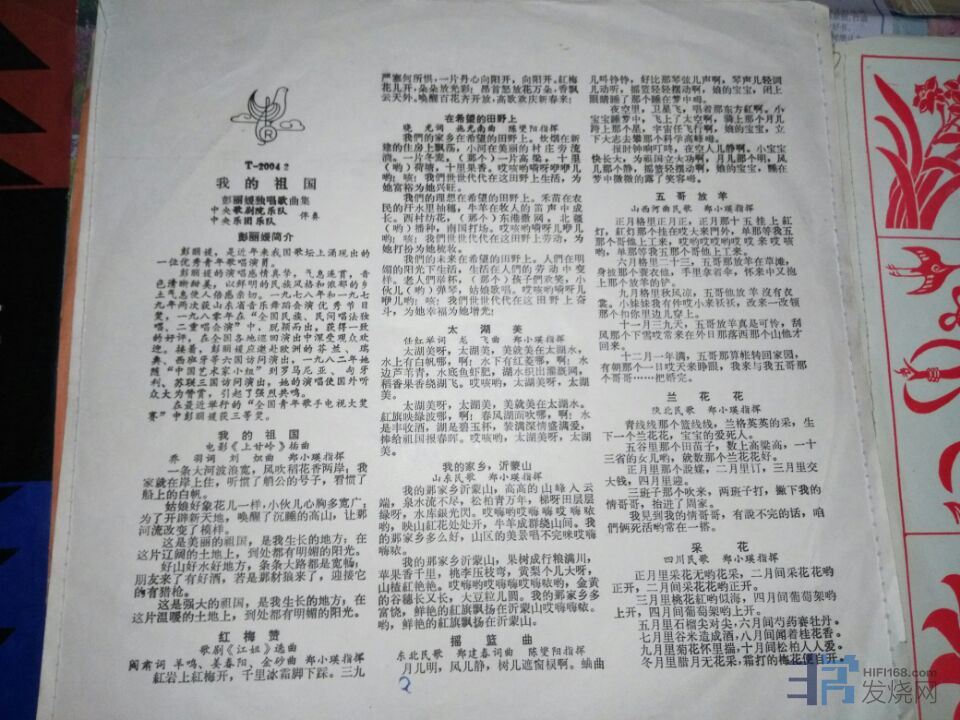 T-20042
我的祖国
彭丽媛独唱歌曲集
中央歌剧院乐队
中央乐团乐队 伴奏
彭丽媛简介
彭丽媛,是近年来我国歌坛上涌现出的
一位优秀青年歌唱演员。
彭丽媛的演唱感情真挚,气息通贯,音
色清晰甜美,以鲜明的民族风格和浓郁的乡
土气息使人倍感亲切。一九七八年和一九七
九年两次获山东省音乐舞蹈会演优秀节目
奖,一九八零年在“全国民族、民间唱法独
唱、二重唱会演”中,脱颖而出,获得一致
的好评。在全国各地巡回演出中深受观众欢
迎。接着,彭丽媛应邀赴欧洲的芬兰、瑞
典、西班牙等六国访问演出,一九八二年她
随“中国艺术家小组”到罗马尼亚、匈牙
利、苏联三国访问演出,她的演唱使国外听
众大为赞赏,引起了强烈共鸣。
在最近举行的“全国青年歌手电视大奖
赛”中彭丽媛获三等奖。
我的祖国
电影《上甘岭》插曲
乔羽词 刘炽曲 郑小瑛指挥
一条大河波浪宽,风吹稻花香两岸,我
家就在岸上住,听惯了艄公的号子,看惯了
船上的白帆。
姑娘好象花儿一样,小伙儿心胸多宽广;
为了开辟新天地,唤醒了沉睡的高山,让那
河流改变了模样。
这是美丽的祖国,是我生长的地方,在
这片辽阔的土地上,到处都有明媚的阳光。
好山好水好地方,条条大路都是宽畅;
朋友来了有好酒,若是那豺狼来了,迎接它
的有猎枪。
这是强大的祖国,是我生长的地方,在
这片温暖的土地上,到处都有明媚的阳光。
红梅赞
歌剧《江姐》选曲
阎肃词 羊鸣、姜春阳、金砂曲 郑小瑛指挥
紅岩上紅梅开,千里冰霜脚下踩。三九
严寒何所惧,一片丹心向阳开,向阳开。紅梅
花儿开,朵朵放光彩;昂首怒放花万朵,香飘
云天外。唤醒百花齐开放,高歌欢庆新春来;
在希望的田野上
晓光词 施光南曲 陈燮阳指挥
我們的家乡在希望的田野上。炊烟在新
建的住房上飘荡,小河在美丽的村庄旁流
淌。一片冬麦,(那个)一片高梁,十里
(哟)荷塘,十里果香。哎咳哟嗬呀儿咿儿
哟!咳!我們世世代代在这田野上生活,为
她富裕为她兴旺。
我們的理想在希望的田野上。禾苗在农
民的汗水里抽穗,牛羊在牧人的笛声中成
长。西村纺花,(那个)东港撒网,北疆
(哟)播种,南国打场。哎咳哟嗬呀儿咿儿
哟!咳!我們世世代代在这田野上劳动,为
她打扮为她梳妆。
我們的未来在希望的田野上。人們在明
媚的阳光下生活,生活在人們的劳动中变
样。老人們举杯,(那个)孩子們欢笑,小
伙儿(哟)弹琴,姑娘歌唱。哎咳哟嗬呀儿
咿儿哟!咳!我們世世代代在这田野上奋
斗,为她幸福为她增光!
太湖美
任红举词 龙飞曲 郑小瑛指挥
太湖美呀,太湖美,美就美在太湖水,
水上有白帆哪,啊;水下有红菱哪,啊;水
边芦苇青,水底鱼虾肥,湖水织出灌溉网,
稻香果香绕湖飞。哎咳哟,太湖美呀,太湖
美。
太湖美呀,太湖美,美就美在太湖水。
紅旗映绿波哪,啊;春风湖面吹哪,啊;水
是丰收酒,湖是碧玉杯,装满深情盛满爱,
捧给祖国报春晖。哎咳哟,太湖美呀,太湖
美。
我的家乡,沂蒙山
山东民歌 郑小瑛指挥
我的那家乡沂蒙山,高高的山峰入云
端,泉水流不尽,松柏青万年,梯呀田层层
绿呀,水库銀光闪。哎嗨哟嗨嗨哎嗨咳哝
哟,映山紅花处处开,牛羊成群绕山间。我
的那家乡多么好,山区的美景唱不完咪哎嗨
嗨哝。
我的那家乡沂蒙山,果树成行粮满川,
苹果香千里,桃李压枝弯,黄梨个儿大呀,
山楂紅艳艳。哎嗨哟嗨嗨哎嗨咳哝哟,金黄
的谷穗长又长,大豆粒儿圆。我的那家乡多
富饶,鲜艳的紅旗飘扬在沂蒙山哎嗨嗨哝。
哟,鲜艳的紅旗飘扬在沂蒙山。
摇篮曲
东北民歌 郑建春词曲 陈燮阳指挥
月儿明,风儿静,树儿遮窗棂啊。蛐曲
儿叫铮铮,好比那琴弦儿声啊,琴声儿轻调
儿动听,摇篮轻轻摆动啊,娘的宝宝,闭上
眼睛睡了那个睡在梦中啊。
夜空里,卫星飞,唱着那东方紅啊。小
宝宝睡梦中,飞上了太空啊,骑上那个月儿
跨上那个星,宇宙任飞行啊,娘的宝宝,立
下大志去攀那个科学高峰啊。
报时钟响叮咚,夜空人儿静啊。小宝宝
快长大,为祖国立大功啊,月儿那个明,风
儿那个静,摇篮轻摆动啊,娘的宝宝,睡在
梦中微微的露了笑容啊。
五哥放羊
山西河曲民歌 郑小瑛指挥
正月格里正月正,正月那十五挂上紅
灯,紅灯那个挂在哎大来門外,单那等我五
那个哥他上工来,哎哟哎哟哟哎哎来哎咳
哟,单那等我五那个哥他上工来。
六月格里二十三,五哥那放羊在草滩,
身披那个蓑衣他,手里拿着伞,怀来中又抱
上那个放羊的铲。
九月格里秋风凉,五哥他放羊沒有衣
裳。小妹妹我有件哎小来袄袄,改来一改領
那个扣你里边儿穿上。
十一月三九天,五哥放羊真是可怜,刮
风那个下雪哎常来在外日那落西那个山他才
回来。
十二月一年满,五哥那算帐转回家园,
有朝那个一日哎天来睁眼,我来与我五那
个哥哥……把婚完。
兰花花
陕北民歌 郑小瑛指挥
青线线那个篮线线,兰格英英的采,生
下一个兰花花,宝宝的爱死人。
五谷里那个田苗子,数上高粱高,一十
三省的女儿哟,就数那个兰花花好。
正月里那个说媒,二月里订,三月里交
大钱,四月里迎。
三班子那个吹来,两班子打,撇下我的
情哥哥,抬进了周家。
我见到我的情哥哥,有说不完的话,咱
們俩死活哟常在一搭。
采花
四川民歌 郑小瑛指挥
正月里采花无哟花采,二月间采花花哟
正开,二月间采花花哟正开。
三月里桃花紅哟似海,四月间葡萄架哟
上开,四月间葡萄架哟上开。
五月里石榴尖对尖,六月间芍药赛牡丹。
七月里谷米造成酒,八月间闻着桂花香。
九月里菊花怀里揣,十月间松柏人人爱。
冬月里腊月无花采,霜打的梅花便自开。
2
HIFI168.com
发烧网